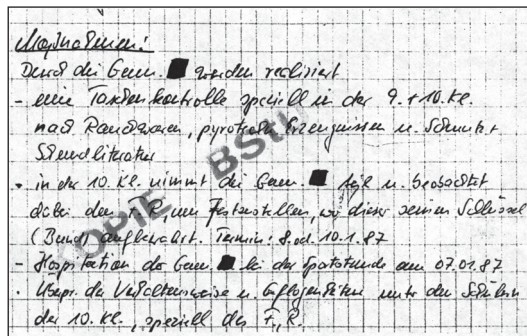 Maßnahmen:
Durch die Genn. werden realisiert
- eine Taschenkontrolle speziell in der 9. + 10. Kl.
nach Rauchwaren, pyrotechn. Erzeugnissen u. Schmutz +
Schundliteratur
- in der 10. Kl. nimmt die Genn. teil u. beobachtet
dabei den F., R., um festzustellen, wo dieser seinen Schlüssel
(Bund) aufbewahrt. Termin: 8. od. 10.1.87
- Hospitation der Genn. bei der Sportstunde am 07.01.87
- Überpr. der Verhaltensweise u. Gepflogenheiten unter den Schülern
der 10. Kl., speziell des F., R.
KOPIE BStU